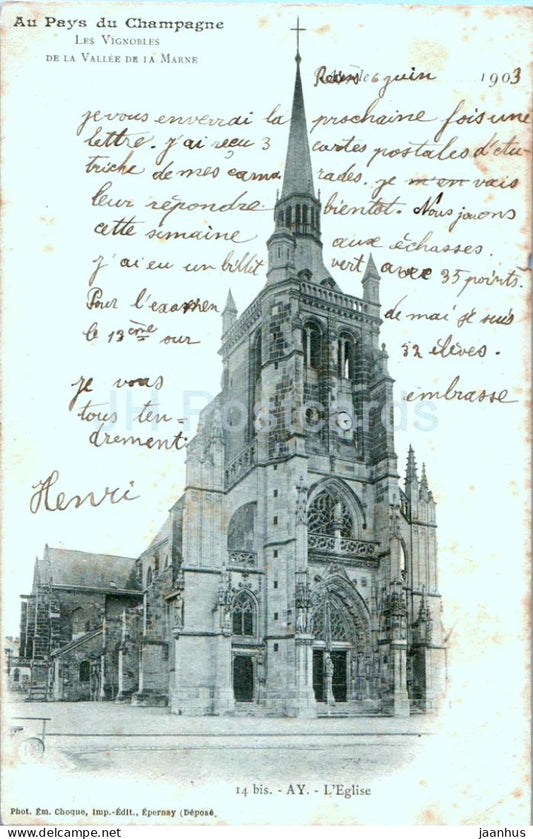 Au Pays du Champagne
LES VIGNOBLES
DE LA VALLÉE DE LA MARNE
Reims le 6 juin 1903
je vous enverrai la prochaine fois une
lettre. j'ai reçu 3 cartes postales d'Au-
triche de mes cama rades. je m'en vais
leur répondre bientôt. Nous jouons
cette semaine aux échasses.
j'ai eu un billet vert avec 35 points.
Pour l'examen de mai je suis
le 13ème sur 32 élèves.
je vous embrasse
tous ten-
drement.
Henri
JH Postcards
14 bis. - AY. - L'Eglise
Phot. Ém. Choque, Imp.-Édit., Épernay (Déposé)
jaanhus